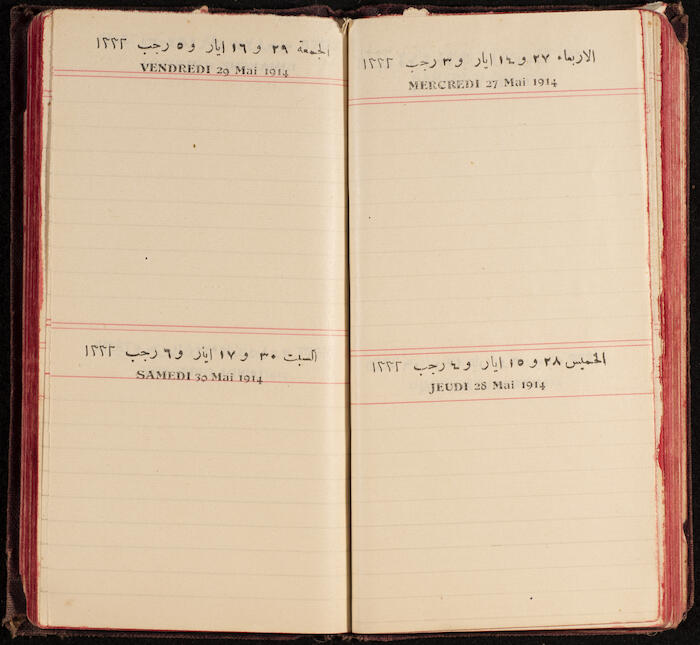 الاربعاء ٢٧ و ١٤ ايار و ٣ رجب ١٣٣٢
MERCREDI 27 Mai 1914
الخميس ٢٨ و ١٥ ايار و ٤ رجب ١٣٣٢
JEUDI 28 Mai 1914
الجمعة ٢٩ و ١٦ ايار و ٥ رجب ١٣٣٢
VENDREDI 29 Mai 1914
السبت ٣٠ و ١٧ ايار و ٦ رجب ١٣٣٢
SAMEDI 30 Mai 1914